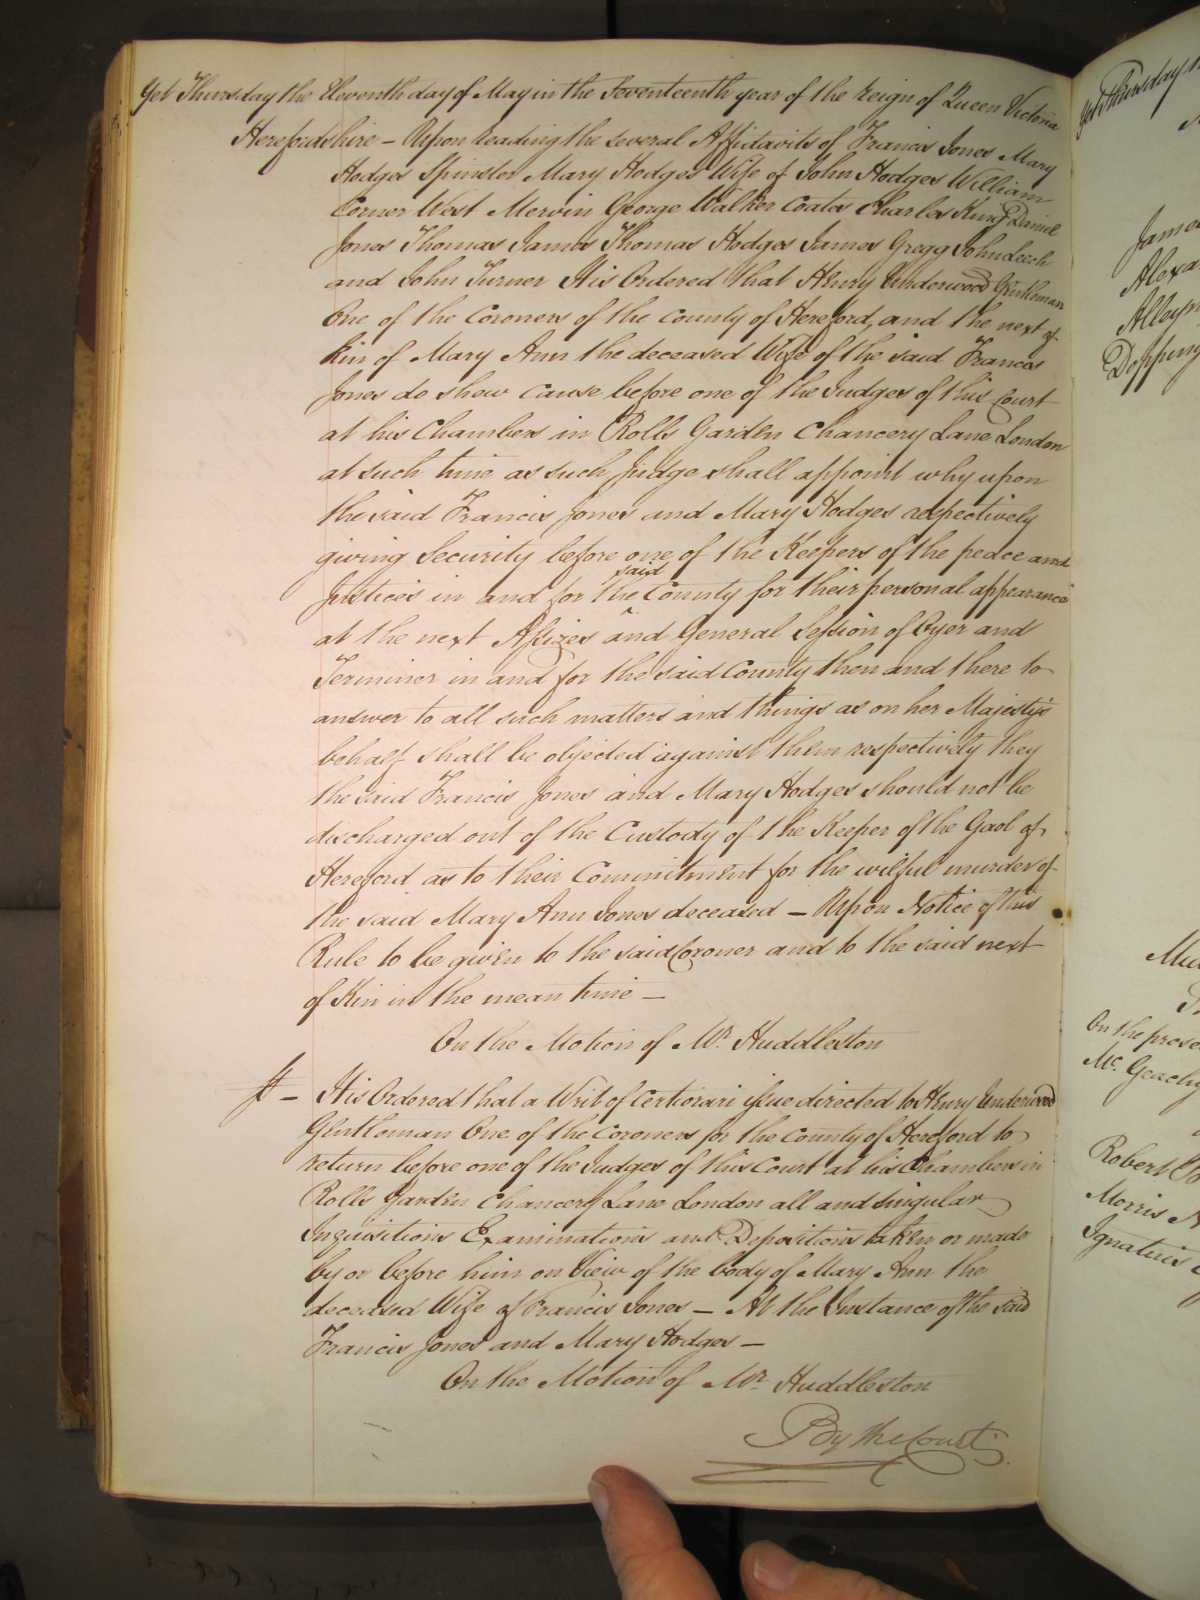 Yet Thursday the Eleventh day of May in the Seventeenth year of the reign of Queen Victoria
Herefordshire – Upon reading the several Affidavits of Francis Jones Mary
Hodges Spinster Mary Hodges Wife of John Hodges William
Corner West Mervin George Walker Coates Charles King Daniel
Jones Thomas James Thomas Hodges James Gregg John Leech
and John Turner It is Ordered that Henry Underwood Gentleman
One of the Coroners of the County of Hereford, and the next of
kin of Mary Ann the deceased Wife of the said Francis
Jones do shew cause before one of the Judges of this Court
at his Chambers in Rolls Garden Chancery Lane London
at such time as such Judge shall appoint why upon
the said Francis Jones and Mary Hodges respectively
giving Security before one of the Keepers of the peace and
Justices in and for the said County for their personal appearance
at the next Assizes and General Session of Oyer and
Terminer in and for the said County then and there to
answer to all such matters and things as on her Majesty's
behalf shall be objected against them respectively they
the said Francis Jones and Mary Hodges should not be
discharged out of the Custody of the Keeper of the Gaol of
Hereford as to their Commitment for the wilful murder of
the said Mary Ann Jones deceased – Upon Notice of this
Rule to be given to the said Coroner and to the said next
of Kin in the mean time –
On the Motion of Mr. Huddleston
It is Ordered that a Writ of Certiorari issue directed to Henry Underwood
Gentleman One of the Coroners for the County of Hereford to
return before one of the Judges of this Court at his Chambers in
Rolls Garden Chancery Lane London all and singular
Inquisitions Examinations and Depositions taken or made
by or before him on View of the body of Mary Ann the
deceased Wife of Francis Jones – At the Instance of the said
Francis Jones and Mary Hodges –
On the Motion of Mr. Huddleston
By the Court
Yet Thursday
James
Alexa
Alleyn
Dopping
On the prose
Mc. Geachy
Robert
Morris
Ignatius